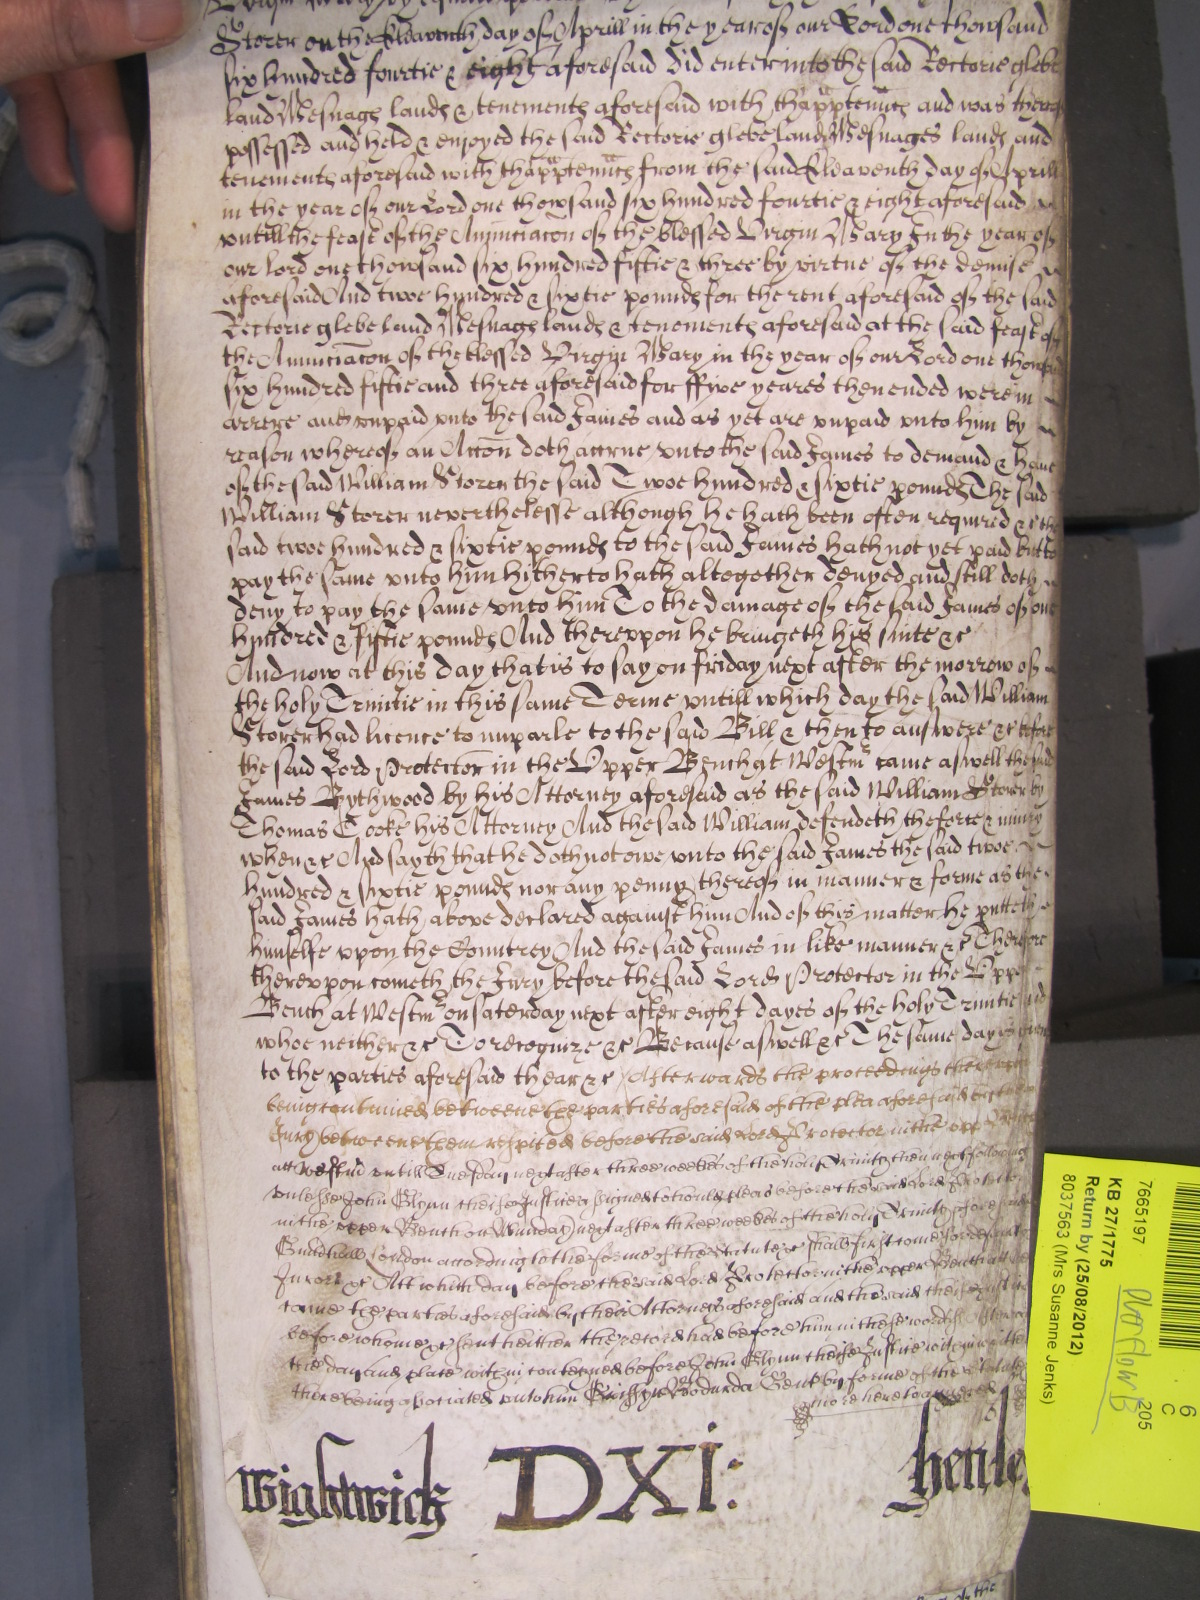 Storer on the Eleaventh day of Aprill in the year of our Lord one thowsand
six hundred fourtie & eight aforesaid did enter into the said Rectorie glebe
land Mesuags lands & tenements aforesaid with thapptenncs and was thereof
possessed and held & enjoyed the said Rectorie glebe land Mesuages lands and
tenements aforesaid with thapptenncs from the said Eleaventh day of Aprill
in the year of our Lord one thowsand six hundred fourtie & eight aforesaid
vntill the feast of the Annunciacon of the blessed Virgin Mary In the year of
our lord one thowsand six hundred fiftie & three by virtue of the demise
aforesaid And twoe hundred & sixtie pounds for the rent aforesaid of the said
Rectorie glebe land Mesuags lands & tenements aforesaid at the said feast of
the Annunciacon of the blessed Virgin Mary in the year of our Lord one thowsand
six hundred fiftie and three aforesaid for ffive yeares then ended were in
arrere and vnpaid vnto the said James and as yet are vnpaid vnto him by
reason whereof an Accon doth accrue vnto the said James to demand & have
of the said William Storer the said Twoe hundred & sixtie pounds The said
William Storer neverthelesse although he hath been often required &c the
said twoe hundred & sixtie pounds to the said James hath not yet paid but to
pay the same vnto him hitherto hath altogether denyed and still doth
deny to pay the same vnto him To the damage of the said James of one
hundred & fiftie pounds And therevpon he bringeth his suite &c
And now at this day that is to say on friday next after the morrow of
the holy Trinitie in this same Terme vntill which day the said William
Storer had licence to imparle to the said Bill & then to answere &c before
the said Lord Protector in the Vpper Bench at Westmr came aswell the said
James Bythwood by his Attorney aforesaid as the said William Storer by
Thomas Cooke his Attorney And the said William defendeth the force & iniury
when &c And sayth that he doth not owe vnto the said James the said twoe
hundred & sixtie pounds nor any penny thereof in manner & forme as the
said James hath above declared against him And of this matter he putteth
himselfe vpon the Countrey And the said James in like manner &c Therefore
therevpon cometh the Jury before the said Lord Protector in the Vpper
Bench at Westmr on saterday next after eight dayes of the holy Trinitie And
whoe neither &c To recognize &c Because aswell &c The same day is given
to the parties aforesaid thear &c Afterwards the proceedings therevpon
being continued betweene the parties aforesaid of the plea aforesaid
Jury betweene them respited before the said Lord Protector in the vpper
att Westmr vntill Tuesday next after three weekes of the holy Trinity then next following
vnlesse John Glynn cheife Justice assigned to hould pleas before the said Lord Protector
in the vpper Bench on Munday next after three weekes of the holy Trinity aforesaid
Guildhall London according to the forme of the statute &c shall first come for default
Jurors &c Att which day before the said Lord Protector in the vpper Bench att
came the parties aforesaid by their Attorneys aforesaid and the said cheife Justice
before whome &c sent hither the record had before him in these words Afterwards
the day and place within conteyned before John Glynn cheife Justice within written
there being associated vnto him Griffith Bodurda Gent by forme of the statute
more hereto annexed
Wightwick DXI: Henle
7665197
KB 27/1775
Return by (25/08/2012)
8037563 (Mrs Susanne Jenks)
205
6
C